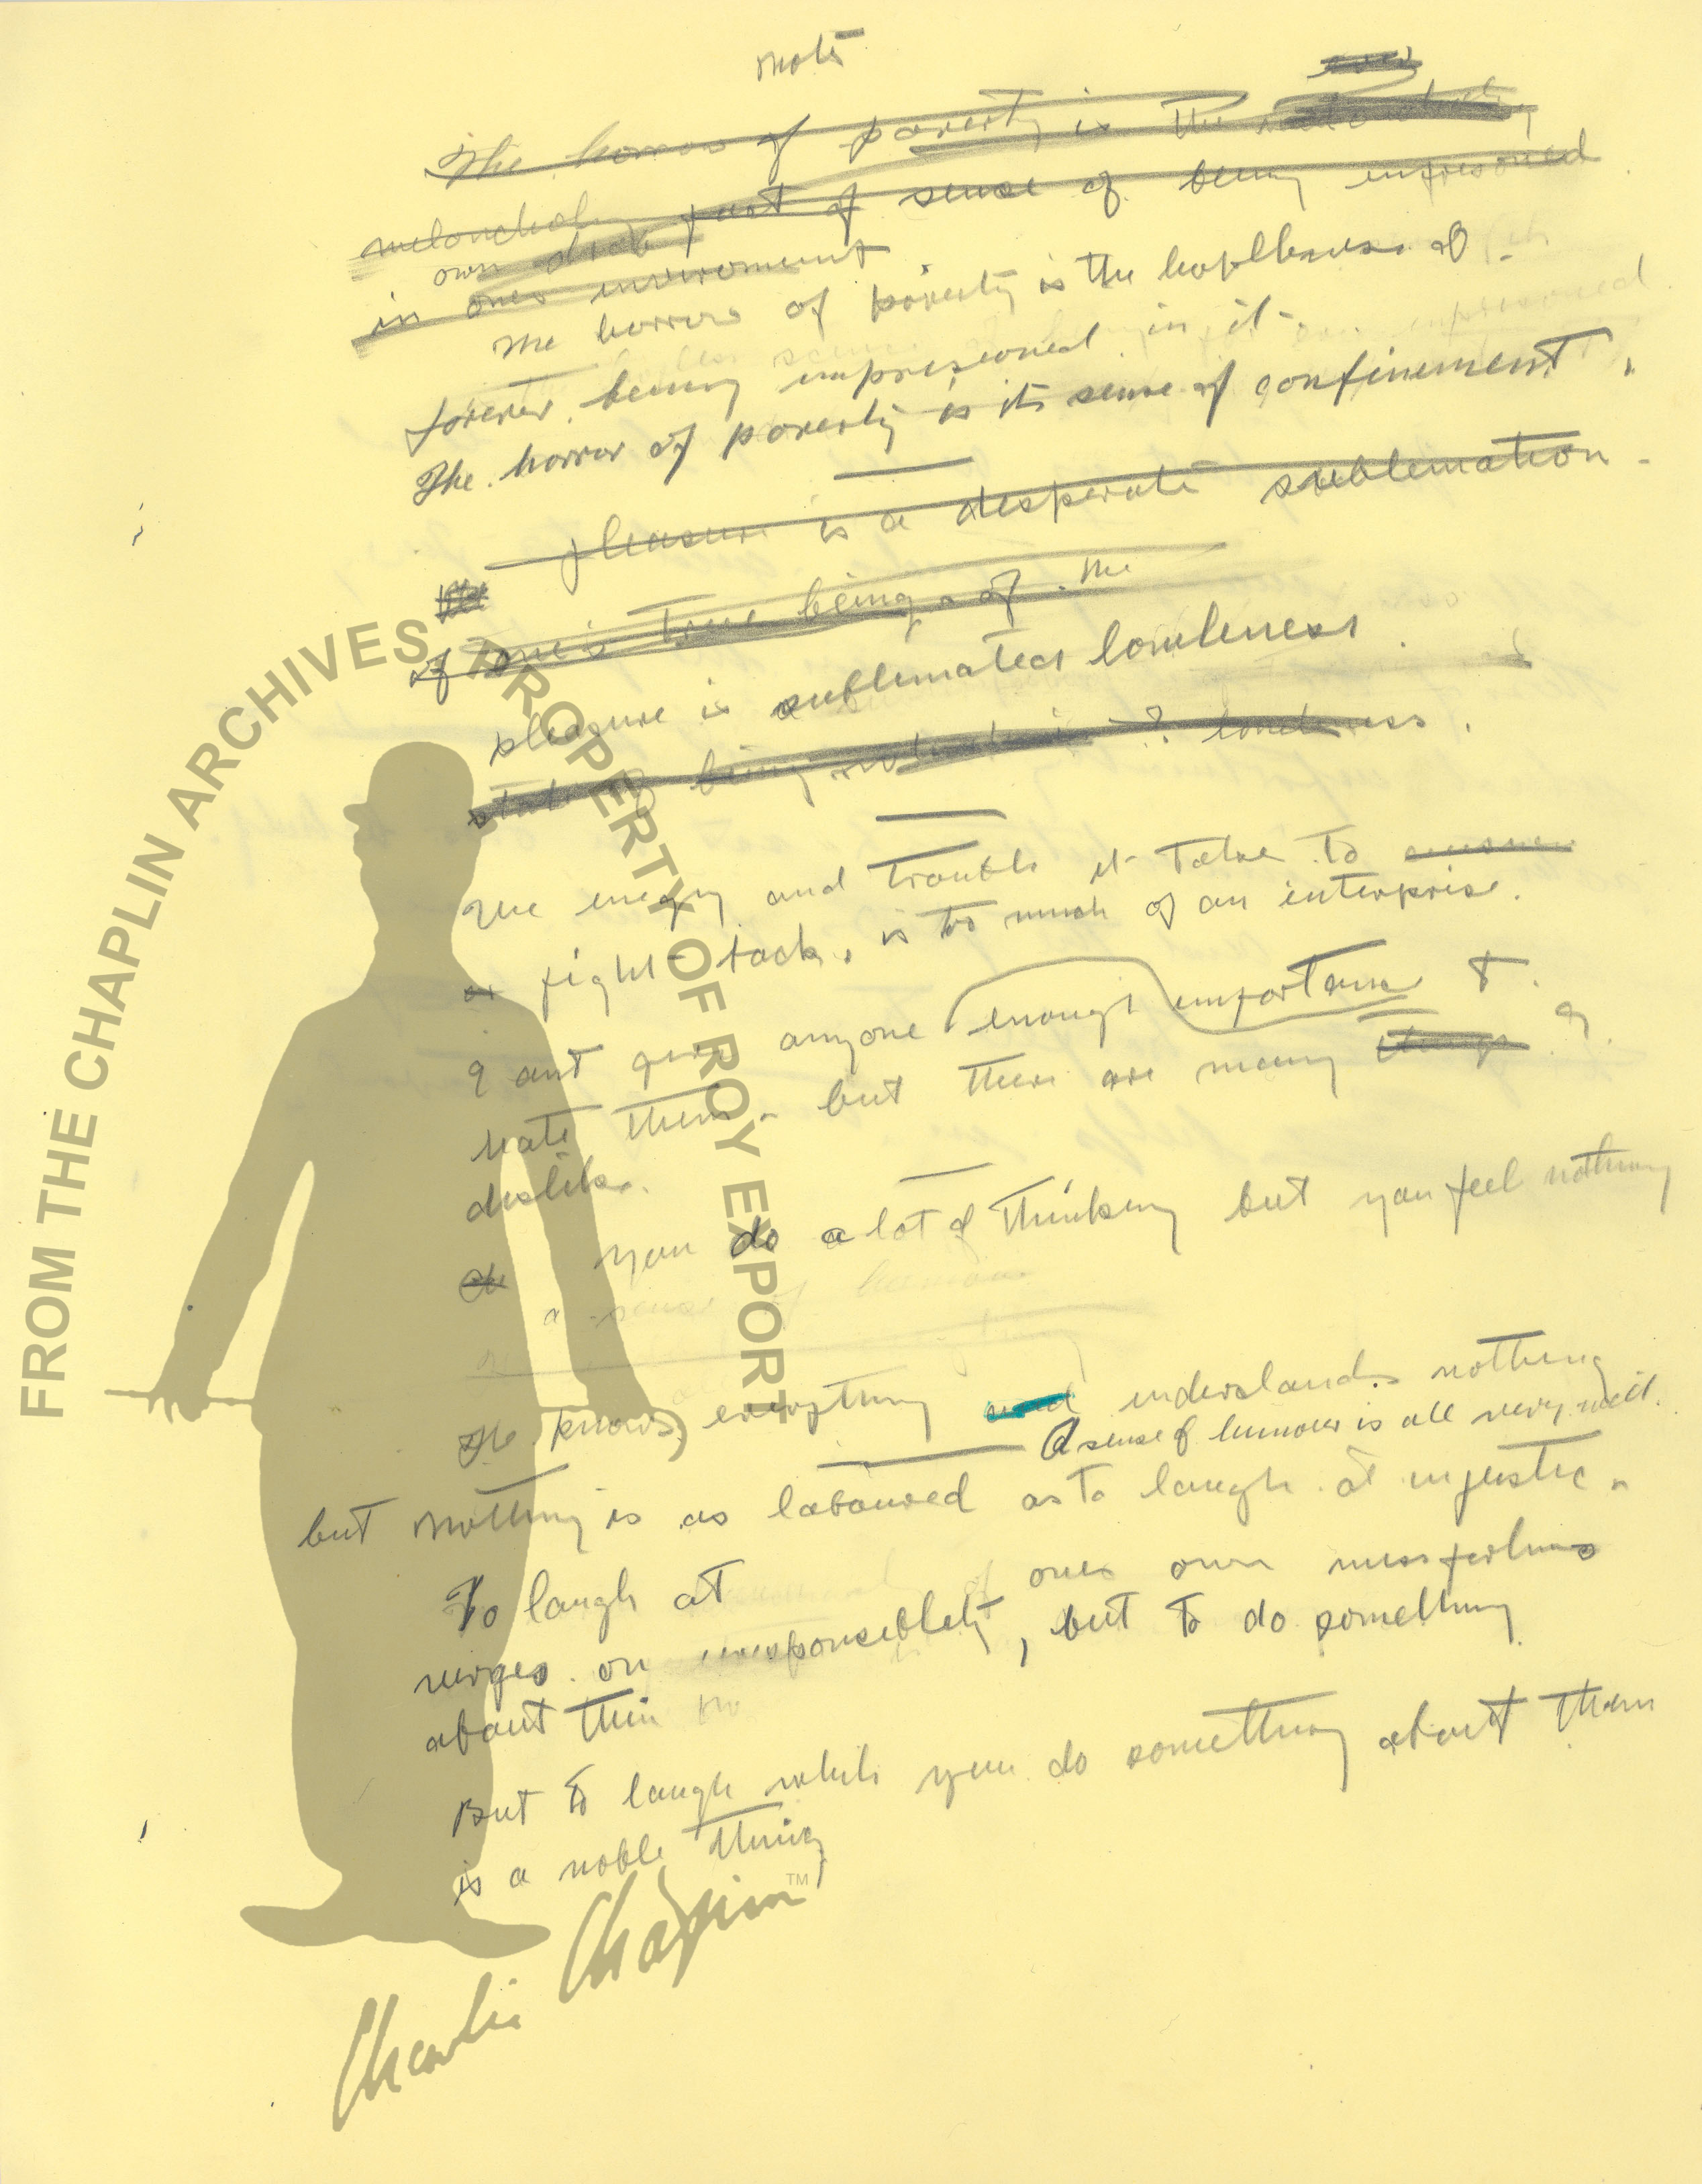 note
The horror of poverty is the
melancholy part of sense of being impresoned
own
in ones invironment
The horror of poverty is the hoplheness of
forever being impresioned in it.
The horror of poverty is its sense of confinement.
pleasure is a desperate sublemation
of one's true being of the
pleasure is sublemated lonleness
state of being lonleness.
The energy and trouble it take to
fight back, is too much of an enterprise.
I cant give anyone enough importance to
hate them - but there are many I
dislike.
you do a lot of thinking but you feel nothing
a sense of humour
He knows everything and understands nothing
A sense of humour is all very well.
but nothing is as laboured as to laugh at injustic.
To laugh at ones own missfortunes
verges on irresponseblety, but to do something
about them no
But to laugh while you do something about them
is a noble thing
FROM THE CHAPLIN ARCHIVES PROPERTY OF ROY EXPORT
Charlie Chaplin™